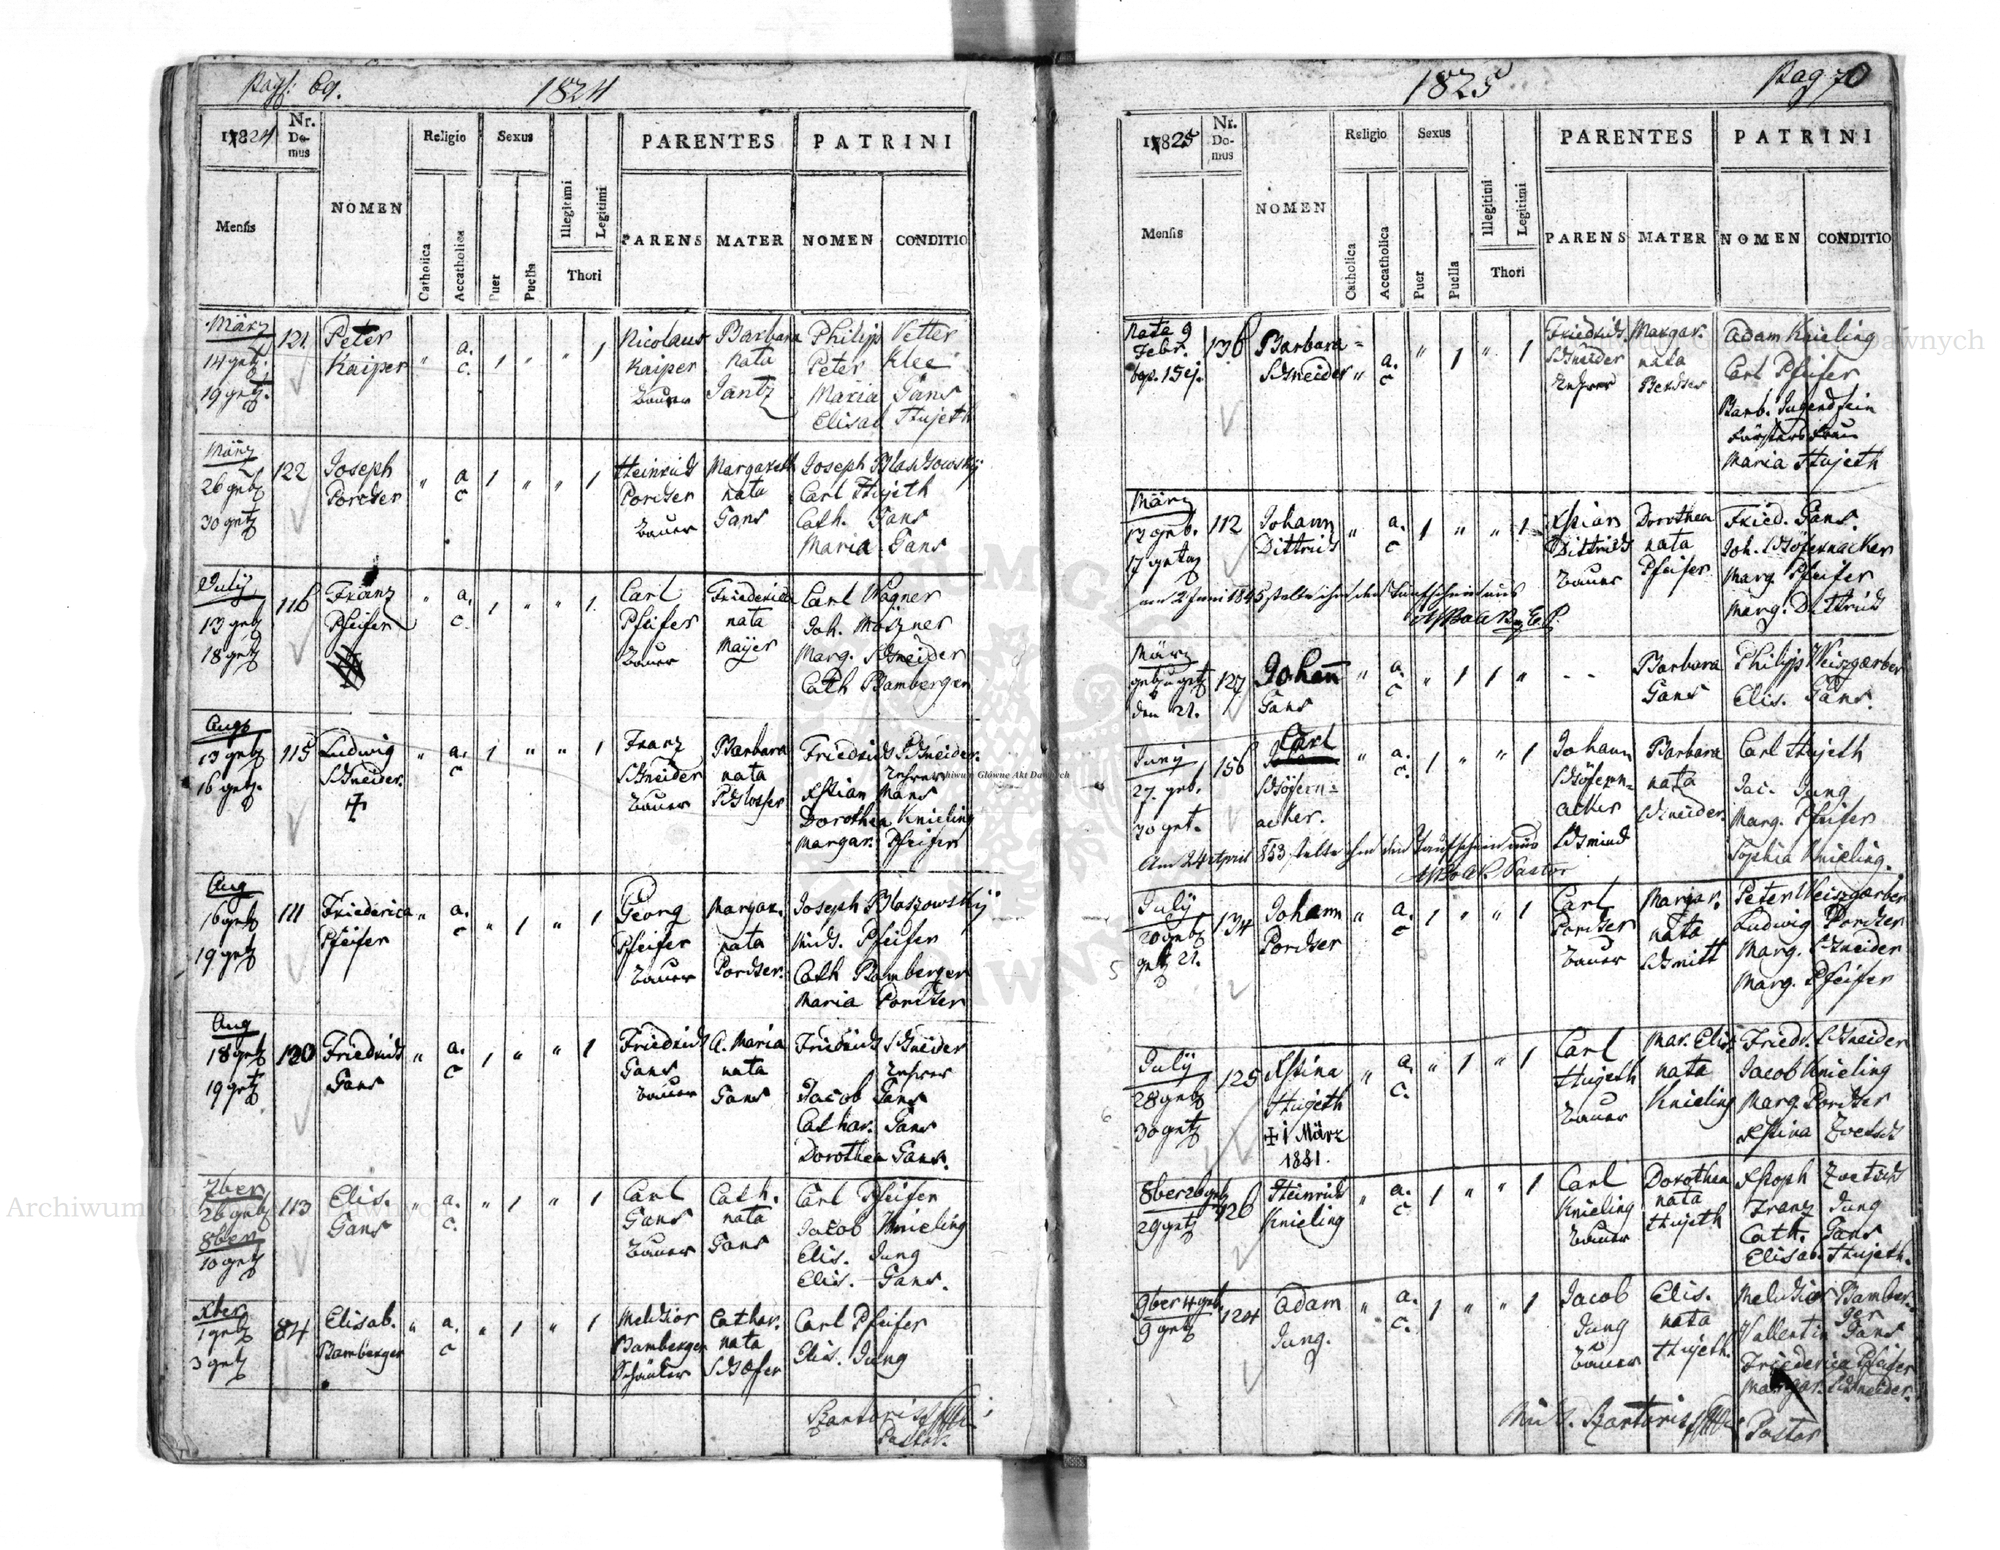 Pag: 69.
1824
1824
Nr. Domus
NOMEN
Religio
Sexus
PARENTES
PATRINI
Mensis
Catholica
Accatholica
Puer
Puella
Illegitimi
Legitimi
Thori
PARENS
MATER
NOMEN
CONDITIO
März 121 Peter Nicolaus Barbara Philipp Vetter
14 geb. Kaiper " a. c. 1 " " 1 Kaiper nata Peter Klee
19 get. Bauer Jantz Maria Gans
Elisab Hujeth
März 122 Joseph Heinrich Margareth Joseph Blaschowsky
26 geb Porcher " a c 1 " " 1 Porcher nata Carl Hujeth
30 get Bauer Gans Cath. Gans
Maria Gans
July 116 Franz " a. c. 1 " " 1. Carl Friederica Carl Wagner
13 geb Pfeifer Pfeifer nata Joh.
18 get Bauer Mayer Marg. Schneider
Cath Bamberger
Aug 115 Ludwig " a. c 1 " " 1 Franz Barbara Friedrich Schneider
13 geb Schneider. Schneider nata Lehrer
16 get. Bauer Schlosser Xstian Mans
Dorothea Knieling
Margar. Pfeifer
Aug 111 Friederica " a. c " 1 " 1 Georg Margar. Joseph Blaszowsky
16 geb Pfeifer Pfeifer nata Mich. Pfeifer
19 get Bauer Porcher. Cath Bamberger
Maria Porcher
Aug 120 Friedrich " a. c 1 " " 1 Friedrich A. Maria Friedrich Schneider
18 geb Gans Gans nata Lehrer
19 get Bauer Gans Jacob Gans
Cathar. Gans
Dorothea Gans.
7ber 113 Elis. " a. c. " 1 " 1 Carl Cath. Carl Pfeifer
26 geb Gans Gans nata Jacob Knieling
8ber Bauer Gans Elis. Jung
10 get Elis. Gans.
Xber 84 Elisab. " a. c " 1 " 1 Melchior Cathar. Carl Pfeifer
1 geb Bamberger Bamberger nata Elis. Jung
3 get Schäcker Schöfer
Pastor.
1825
Pag 70
1825
Nr. Domus
NOMEN
Religio
Sexus
PARENTES
PATRINI
Mensis
Catholica
Accatholica
Puer
Puella
Illegitimi
Legitimi
Thori
PARENS
MATER
NOMEN
CONDITIO
Nata 9 136 Barbara Friedrich Margar. Adam Knieling
Febr. Schneider " a. c " 1 " 1 Schneider nata Carl Pfeifer
bap. 15 ej. Lehrer Barb. Jugendfein
Försters Frau
Maria Hujeth
März 112 Johann " a. c 1 " " 1 Xstian Dorothea Fried. Gans.
13 geb. Dittrich Dittrich nata Joh. Schöfernacker
17 get Bauer Pfeifer Marg. Pfeifer
am 2 Juni 1845 stelte ihm den Taufschein aus Marg. Dittrich
März 127 Johann " a. c " 1 1 " - - Barbara Philipp Weiszgerber
geb u get Gans Gans Elis. Gans.
den 21.
Juny 156 Carl " a. c. 1 " " 1 Johann Barbara Carl Hujeth
27. geb. Schöfern= Schöfern= nata Jac. Jung
30 get. acker. acker Schneider. Marg. Pfeifer
Schmied Sophia Knieling.
Am 24 April 853 stelte ihm den Taufschein aus
Pastor
July 134 Johann " a. c 1 " " 1 Carl Margar. Peter Weiszgerber
20 geb Porcher Porcher nata Ludwig Porcher
get 21. Bauer Schmitt Marg. Schneider
Marg. Pfeifer
July 125 Xstina " a. c. " 1 " 1 Carl Mar. Elis. Friedr. Schneider
28 geb Hujeth Hujeth nata Jacob Knieling
30 get + 1 März Bauer Knieling Marg. Porcher
1881. Xstina Zwetsch
8ber 26 geb 126 Heinrich " a. c. 1 " " 1 Carl Dorothea Xstoph Zwetsch
29 get Knieling Knieling nata Franz Jung
Bauer Hujeth Cath. Gans
Elisab. Hujeth.
9ber 4 geb. 124 Adam " a. c. 1 " " 1 Jacob Elis. Melchior Bamber=
9 get Jung. Jung nata ger
Bauer Hujeth. Vallentin Gans
Friederica Pfeifer
Margar. Schneider.
Pastor
Archiwum Główne Akt Dawnych